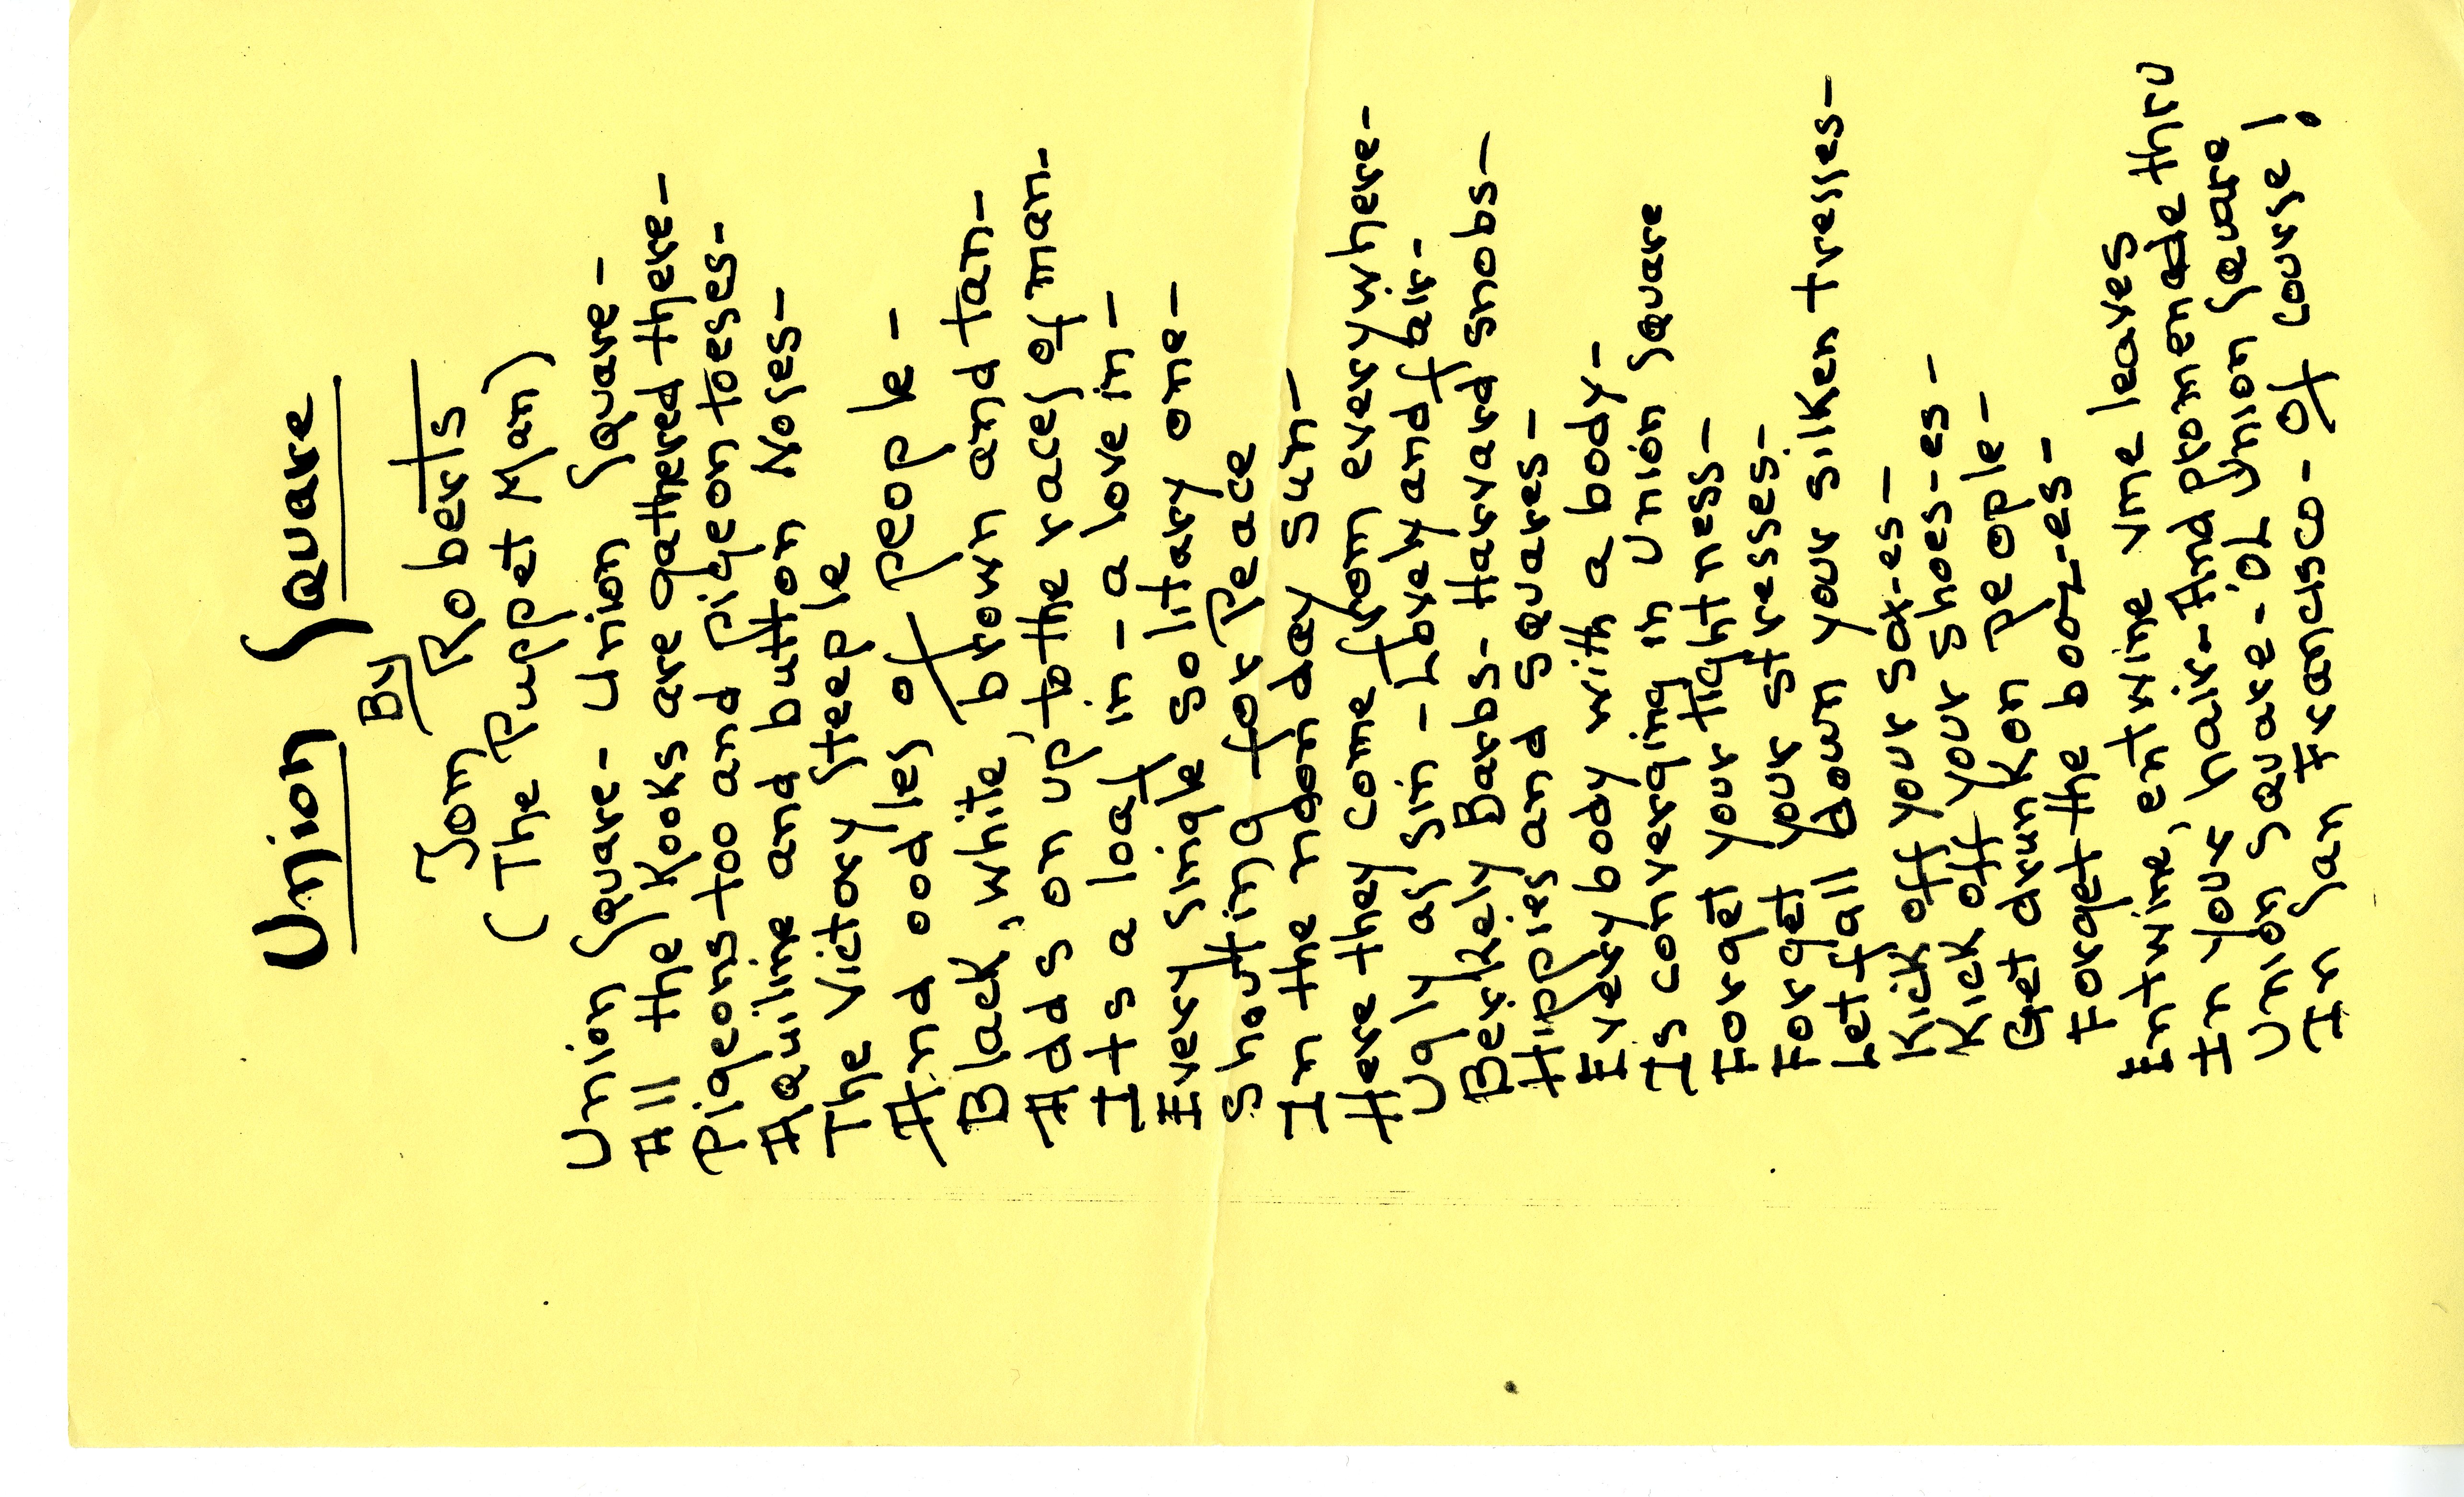 Union Square
By
Tom Roberts
(The Puppet Man)
Union Square- Union Square-
All the Kooks are gathered there-
Pigeons too and pigeon toeses-
Aquiline and button Noses-
The Victory Steeple
And oodles of people-
Black, white, brown and tan-
Adds on up to the races of man-
Its a loaf in - a love in-
Every single solitary one-
Shouting for Peace
In the noonday sun-
Here they come from everywhere-
Ugly as sin - Lovely and fair-
Berkely Barbs- Harvard snobs-
Hippies and squares-
Everybody with a body-
Is converging in Union Square
Forget your tightness-
Forget your stresses-
Let fall down your silken tresses-
Kick off your sox-es-
Kick off your shoes-es-
Get drunk on people-
Forget the booz-es-
Entwine, entwine vine leaves
In your hair- And promenade thru
Union Square- ol Union Square
In San Francisco- of course!